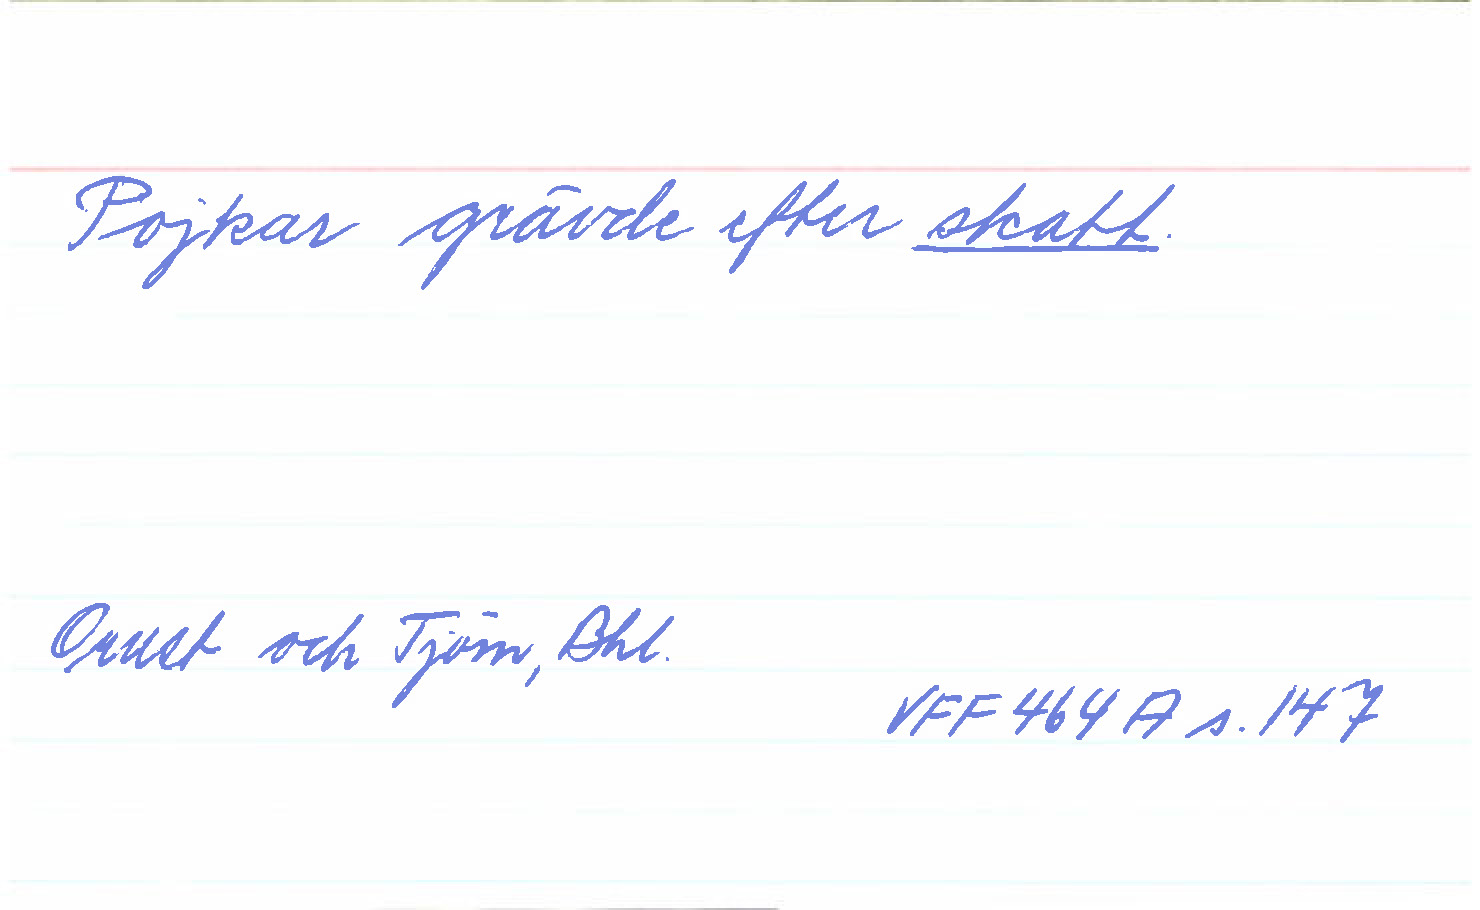 Pojkar grävde efter skatt.
Orust och Tjörn, Bhl.
VFF 464 A s. 147